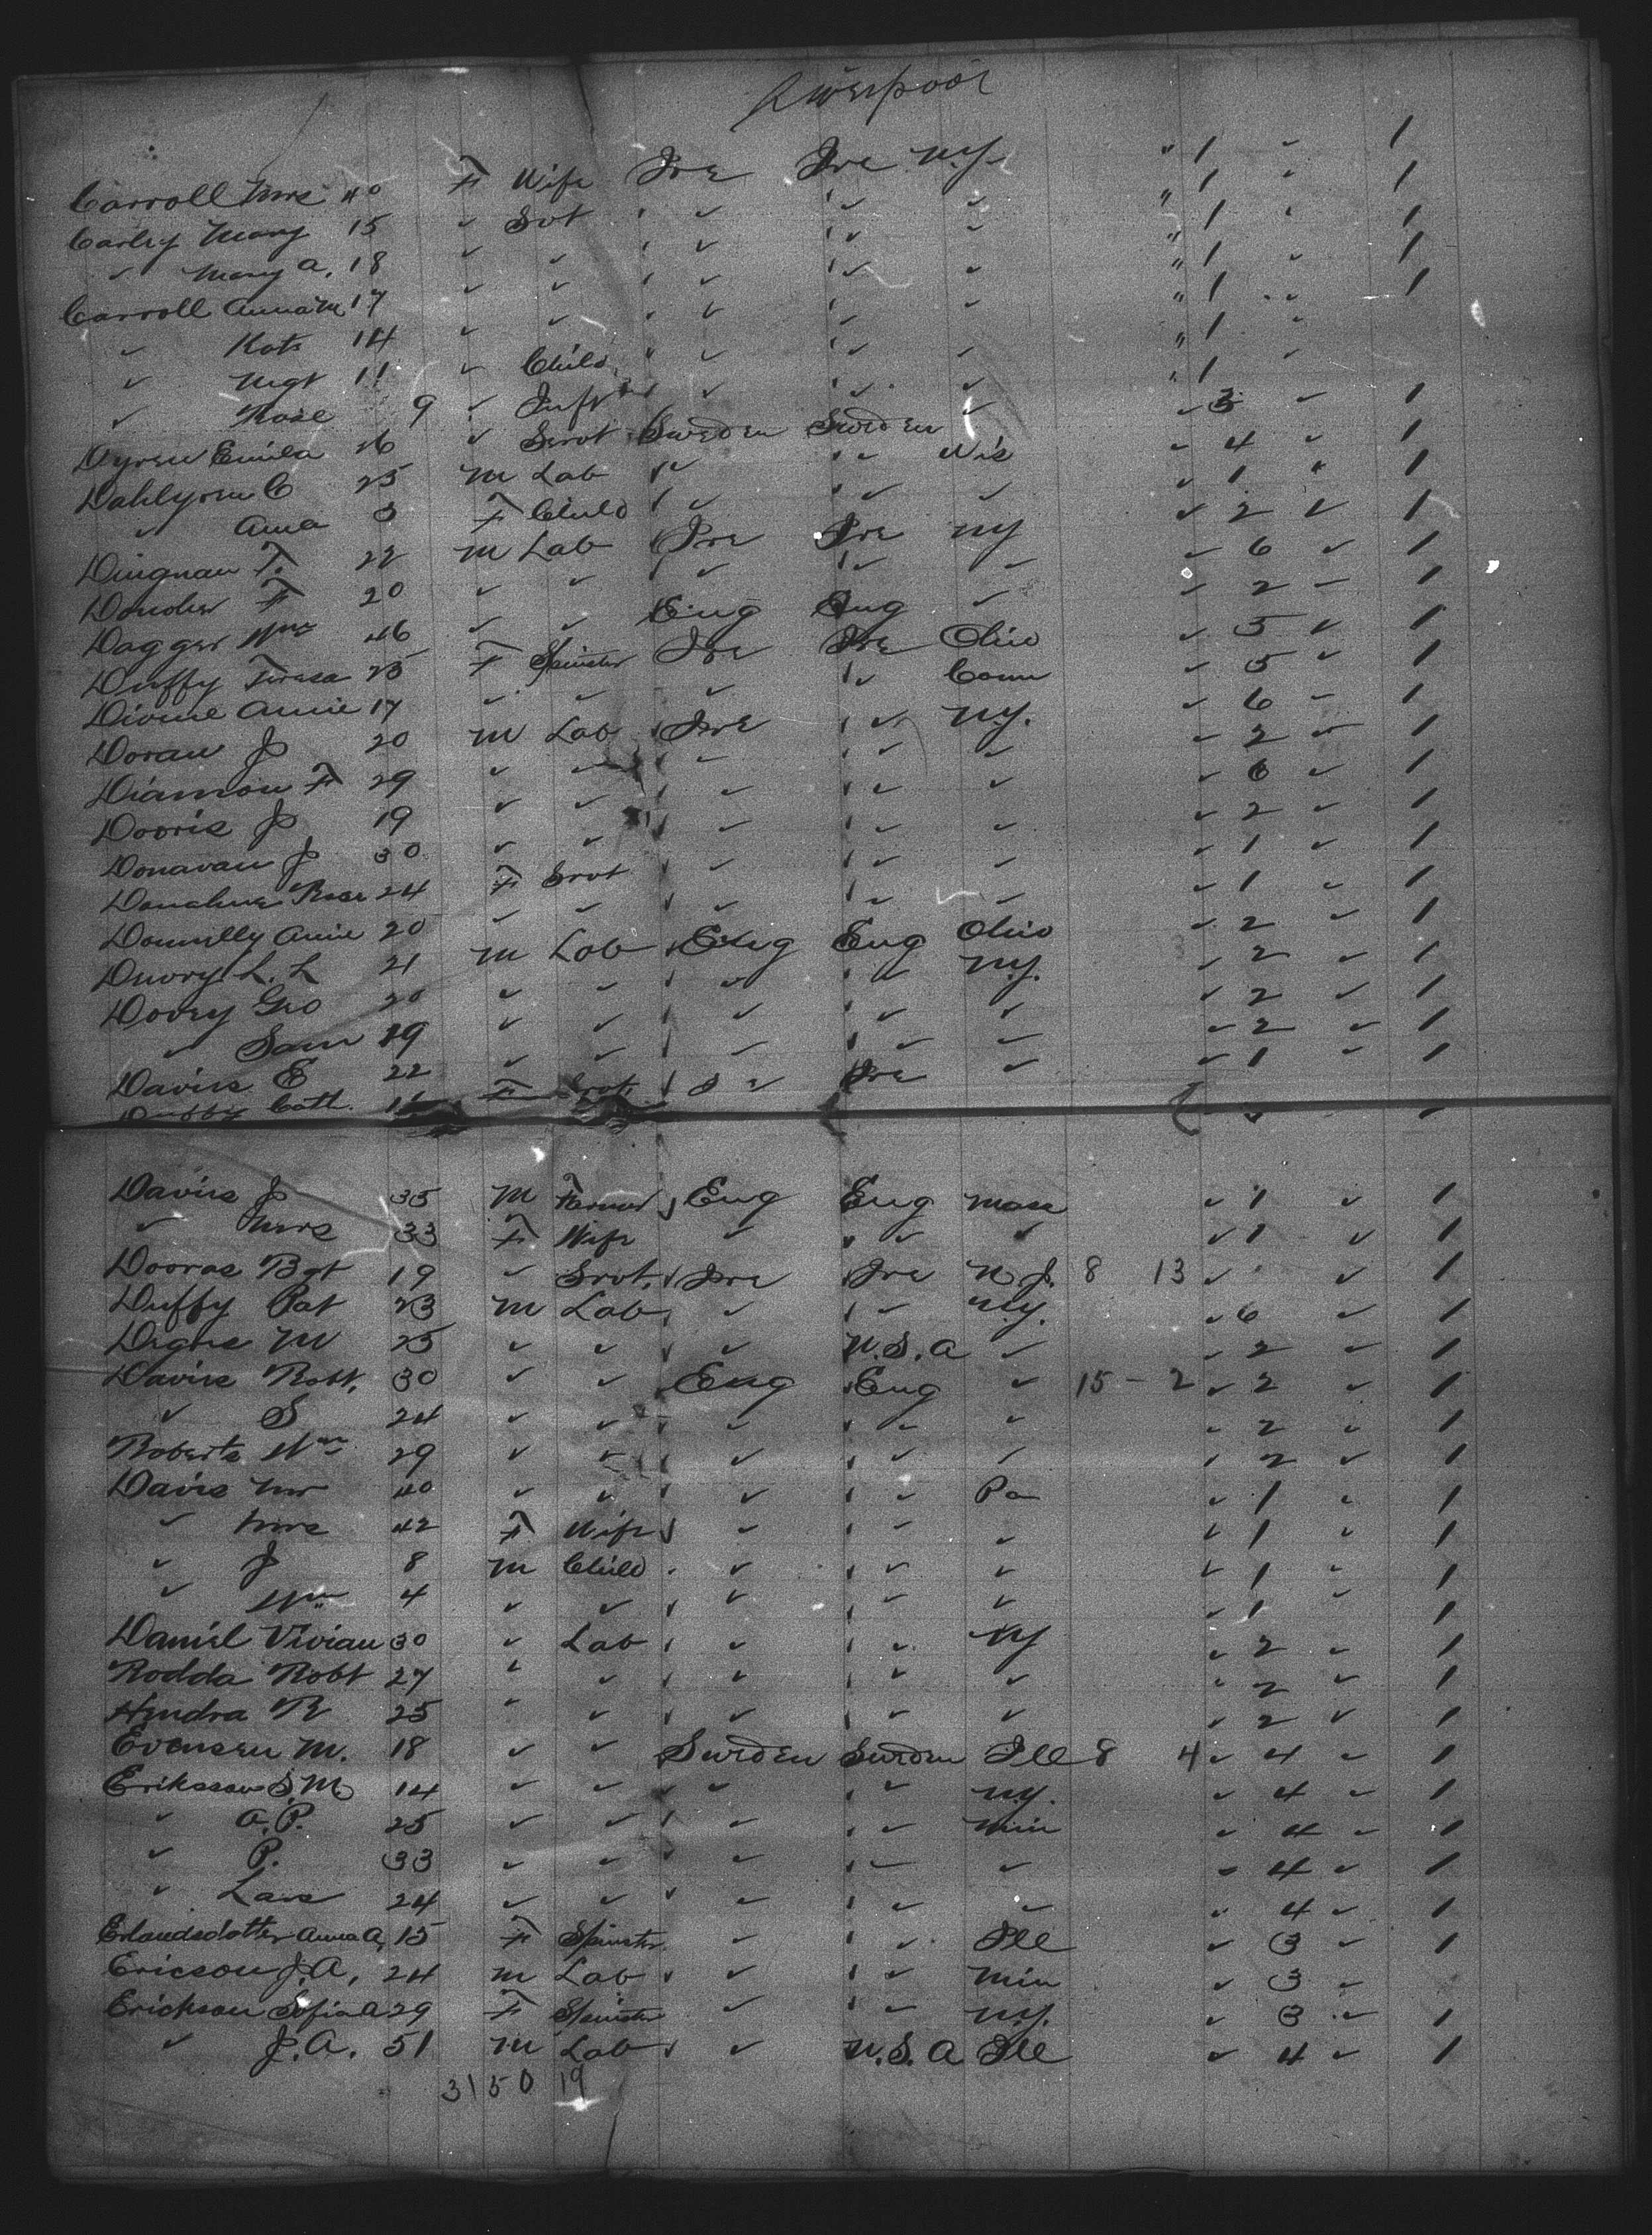 Liverpool
Carroll Mrs 40 F Wife Ire Ire N.Y. " 1 ✓ 1
Carley Mary 15 ✓ Svt ✓ ✓ ✓ " 1 " 1
✓ Mary A. 18 ✓ ✓ ✓ ✓ ✓ " 1 ✓ 1
Carroll Anna M 17 ✓ ✓ ✓ ✓ ✓ " 1 ✓ 1
✓ Kate 14 ✓ ✓ ✓ ✓ ✓ " 1 ✓ 1
✓ Mgt 11 ✓ Child ✓ ✓ ✓ " 1 ✓
✓ Rose 9 ✓ ✓ ✓ ✓ " 1
Emilia 26 ✓ Servt Sweden Sweden ✓ ✓ 3 ✓ 1
C 25 M Lab ✓ ✓ Wis ✓ 4 ✓ 1
✓ Anna 3 F Child ✓ ✓ ✓ ✓ 1 " 1
Dingnan T. 22 M Lab Ire Ire NY ✓ 2 ✓ 1
F 20 ✓ ✓ ✓ ✓ ✓ ✓ 6 ✓ 1
Dagger Wm 46 ✓ ✓ Eng Eng ✓ ✓ 2 ✓ 1
Duffy Teresa 25 F Spinster Ire Ire Ohio ✓ 5 ✓ 1
Divine Annie 17 ✓ ✓ ✓ ✓ Conn ✓ 5 ✓ 1
Doran J 20 M Lab Ire ✓ N.Y. ✓ 6 ✓ 1
F 29 ✓ ✓ ✓ ✓ ✓ ✓ 2 ✓ 1
Dooris J 19 ✓ ✓ ✓ ✓ ✓ ✓ 6 ✓ 1
Donavan J 30 ✓ ✓ ✓ ✓ ✓ ✓ 2 ✓ 1
Donahue Rose 24 F Srvt ✓ ✓ ✓ ✓ 1 ✓ 1
Donnelly Annie 20 ✓ ✓ ✓ ✓ ✓ ✓ 1 ✓ 1
L. L 21 M Lab Eng Eng Ohio ✓ 2 ✓ 1
Dovey Geo 20 ✓ ✓ ✓ ✓ N.Y. ✓ 2 ✓ 1
✓ Sam 19 ✓ ✓ ✓ ✓ ✓ ✓ 2 ✓ 1
Davis E 22 ✓ ✓ ✓ ✓ ✓ ✓ 2 ✓ 1
Cath. F Srvt Ire ✓ ✓ 1 ✓ 1
Davis J 35 M Farmer Eng Eng Mass ✓ 1 ✓ 1
✓ Mrs 33 F Wife ✓ ✓ ✓ ✓ 1 ✓ 1
Dooras Bgt 19 ✓ Srvt. Ire Ire N.J. 8 13 ✓ ✓ 1
Duffy Pat 23 M Lab ✓ ✓ N.Y. ✓ 6 ✓ 1
M 25 ✓ ✓ ✓ U.S.A ✓ ✓ 2 ✓ 1
Davis Robt. 30 ✓ ✓ Eng Eng ✓ 15 - 2 ✓ 2 ✓ 1
✓ S 24 ✓ ✓ ✓ ✓ ✓ ✓ 2 ✓ 1
Roberts Wm 29 ✓ ✓ ✓ ✓ ✓ 2 ✓ 1
Davis Mr 40 ✓ ✓ ✓ ✓ Pa ✓ 1 ✓ 1
✓ Mrs 42 F Wife ✓ ✓ ✓ ✓ 1 ✓ 1
✓ J 8 M Child ✓ ✓ ✓ ✓ 1 ✓ 1
✓ Wm 4 ✓ ✓ ✓ ✓ ✓ ✓ 1 ✓ 1
Daniel Vivian 30 ✓ Lab ✓ ✓ NY ✓ 2 ✓ 1
Rodda Robt 27 ✓ ✓ ✓ ✓ ✓ ✓ 2 ✓ 1
Hendra R 25 ✓ ✓ ✓ ✓ ✓ ✓ 2 ✓ 1
Evensen M. 18 ✓ ✓ Sweden Sweden Ill 8 4 ✓ 4 ✓ 1
Eriksson S.M. 14 ✓ ✓ ✓ ✓ N.Y. ✓ 4 ✓ 1
✓ A.P. 25 ✓ ✓ ✓ ✓ Min ✓ 4 ✓ 1
✓ P. 33 ✓ ✓ ✓ ✓ ✓ ✓ 4 ✓ 1
✓ Lars 24 ✓ ✓ ✓ ✓ ✓ ✓ 4 ✓ 1
Erlandsdotter Anna A. 15 F Spinster ✓ ✓ Ill ✓ 3 ✓ 1
Ericson J.A. 24 M Lab ✓ ✓ Min ✓ 3 ✓
Erickson Sofia A 29 F Spinster ✓ ✓ N.Y. ✓ 3 ✓ 1
✓ J.A. 51 M Lab ✓ U.S.A Ill ✓ 4 ✓ 1
3150 19